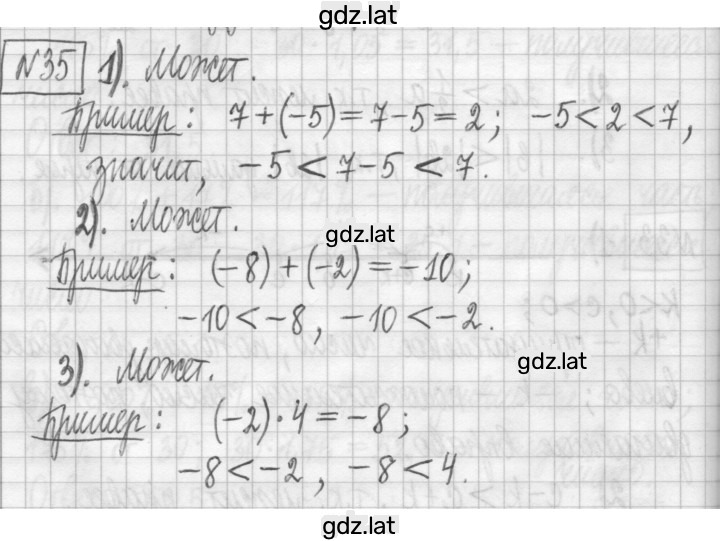 gdz.lat
№35 1). Может.
Пример: 7+(-5)=7-5=2; -5<2<7,
значит, -5<7-5<7.
2). Может.
gdz.lat
Пример: (-8)+(-2)=-10;
-10<-8, -10<-2.
gdz.lat
3). Может.
Пример: (-2)·4=-8;
-8<-2, -8<4.
gdz.lat